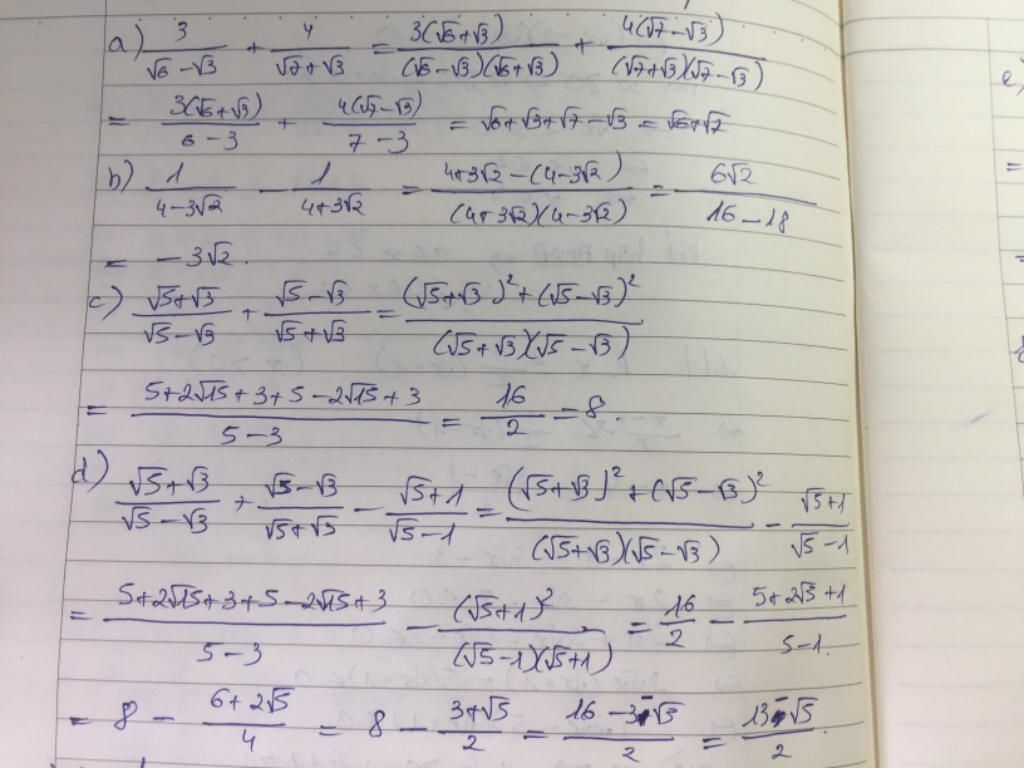 a) 3/(√6 - √3) + 4/(√7 + √3) = 3(√6+√3)/((√6-√3)(√6+√3)) + 4(√7-√3)/((√7+√3)(√7-√3))
= 3(√6+√3)/(6-3) + 4(√7-√3)/(7-3) = √6+√3+√7-√3 = √6+√7
b) 1/(4-3√2) - 1/(4+3√2) = (4+3√2-(4-3√2))/((4+3√2)(4-3√2)) = 6√2/(16-18)
= -3√2.
c) (√5+√3)/(√5-√3) + (√5-√3)/(√5+√3) = ((√5+√3)²+(√5-√3)²)/((√5+√3)(√5-√3))
= (5+2√15+3+5-2√15+3)/(5-3) = 16/2 = 8.
d) (√5+√3)/(√5-√3) + (√5-√3)/(√5+√3) - (√5+1)/(√5-1) = ((√5+√3)²+(√5-√3)²)/((√5+√3)(√5-√3)) - (√5+1)/(√5-1)
= (5+2√15+3+5-2√15+3)/(5-3) - (√5+1)²/((√5-1)(√5+1)) = 16/2 - (5+2√5+1)/(5-1).
= 8 - (6+2√5)/4 = 8 - (3+√5)/2 = (16-3-√5)/2 = (13-√5)/2.